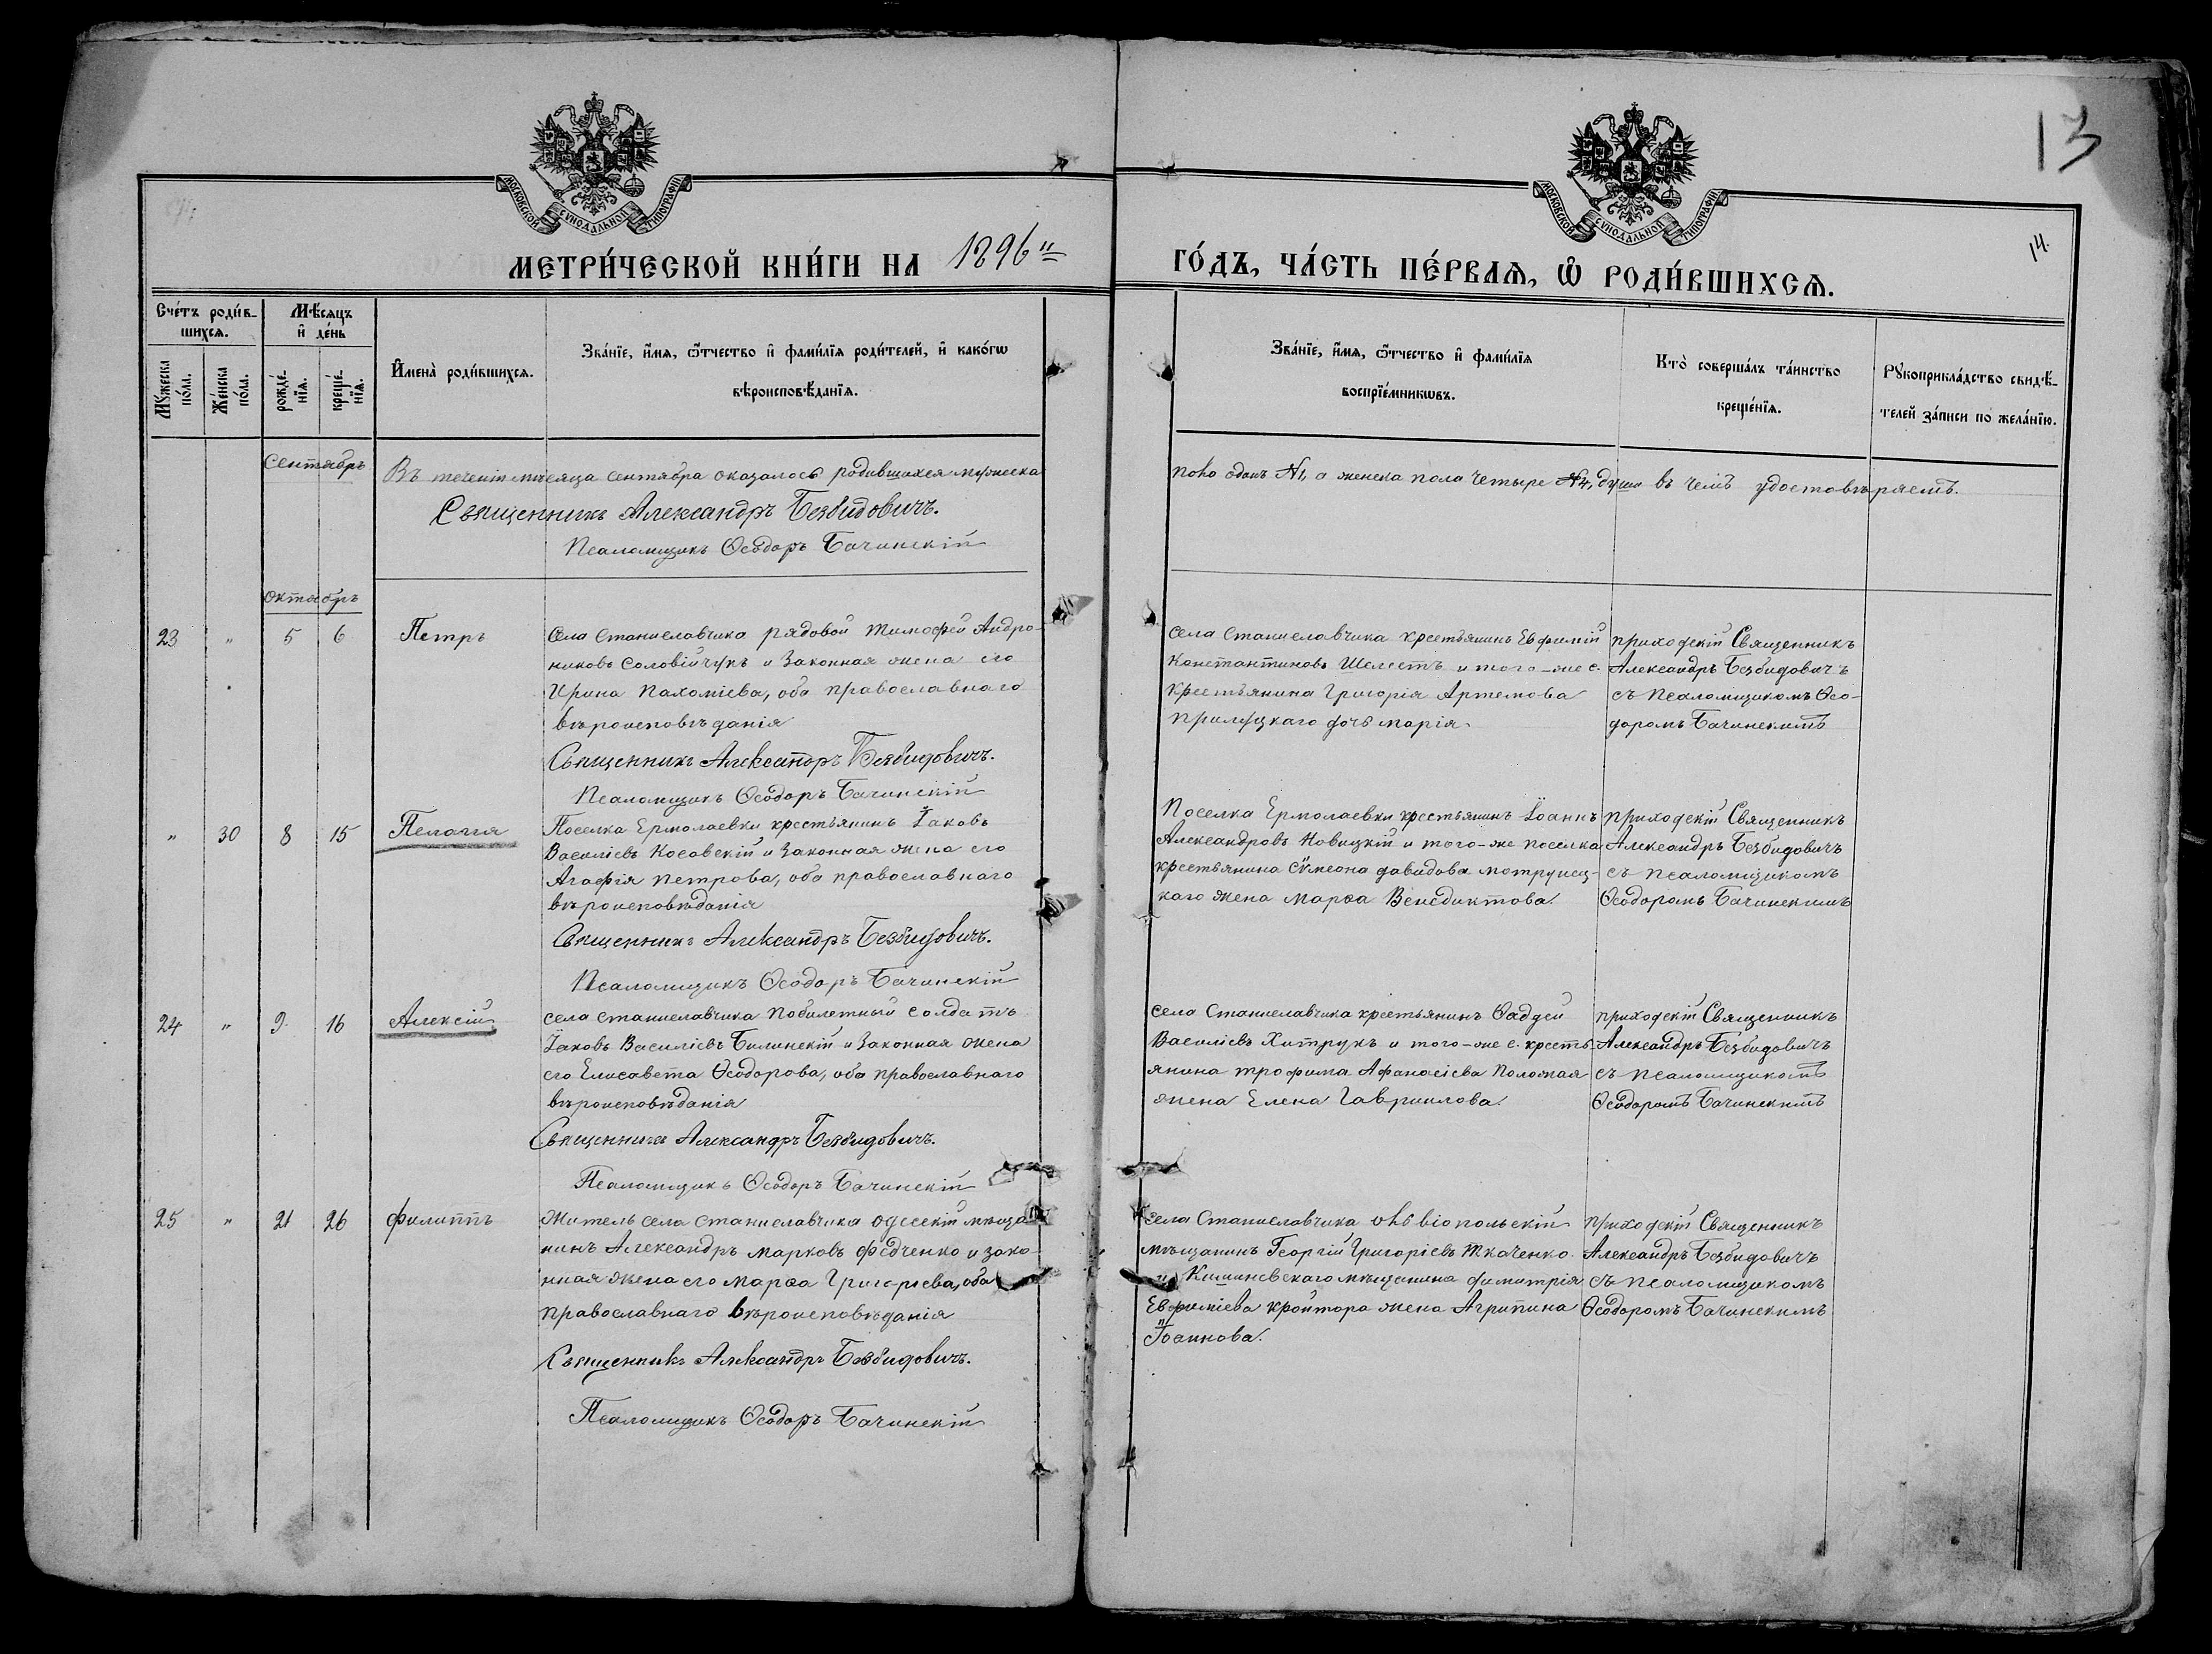 13
14.
МОСКОВСКОЙ СѴНОДАЛЬНОЙ ТИПОГРАФІИ
МОСКОВСКОЙ СѴНОДАЛЬНОЙ ТИПОГРАФІИ
МЕТРИ́ЧЕСКОЙ КНИ́ГИ НА 1896й
ГО́ДЪ, ЧА́СТЬ ПЕ́РВАѦ, Ѡ҆ РОДИ́ВШИХСѦ.
Сче́тъ роди́в-
шихсѧ.
Мѣ́сѧцъ
и҆ де́нь
Мꙋ́жеска
по́ла.
Же́нска
по́ла.
рожде́-
нїѧ.
креще́-
нїѧ.
И҆мена̀ роди́вшихсѧ.
Зва́нїе, и҆́мѧ, ѻ҆́тчество и҆ фами́лїѧ роди́телей, и҆ како́гѡ
вѣроисповѣ́данїѧ.
Зва́нїе, и҆́мѧ, ѻ҆́тчество и҆ фами́лїѧ
воспрїе́мникѡвъ.
Кто̀ соверша́лъ та́инство
креще́нїѧ.
Рꙋкоприкла́дство свидѣ́-
телей за́писи по жела́нїю.
Сентябрь
Въ теченіи мѣсяца Сентября оказалось родившихся мужеска
пола одинъ №1, а женска пола четыре №4, души въ чемъ удостовѣряемъ.
Священникъ Александръ Безбидовичъ.
Псаломщикъ Ѳеодоръ Бачинскій
Октябрь
23 " 5 6 Петръ
Села Станиславчика рядовой Тимофей Андро-
никовъ Соловійчукъ и законная жена его
Ирина Пахоміева, оба православнаго
вѣроисповѣданія
Священникъ Александръ Безбидовичъ.
Псаломщикъ Ѳеодоръ Бачинскій
Села Станиславчика крестьянинъ Евфимій
Константиновъ Шелестъ и того-же с.
крестьянина Григорія Артемова
Прилуцкаго дочь Марія.
приходскій Священникъ
Александръ Безбидовичъ
съ псаломщикомъ Ѳео-
доромъ Бачинскимъ
" 30 8 15 Пелагія
Поселка Ермолаевки крестьянинъ Іаковъ
Василіевъ Косовскій и законная жена его
Агафія Петрова, оба православнаго
вѣроисповѣданія
Священникъ Александръ Безбидовичъ.
Псаломщикъ Ѳеодоръ Бачинскій
Поселка Ермолаевки крестьянинъ Іоаннъ
Александровъ Новицкій и того-же поселка
крестьянина Сѵмеона Давидова Мотрунец-
каго жена Марѳа Венедиктова.
приходскій Священникъ
Александръ Безбидовичъ
съ псаломщикомъ
Ѳеодоромъ Бачинскимъ
24 " 9 16 Алексій
Села Станиславчика побилетный солдатъ
Іаковъ Василіевъ Билинскій и законная жена
его Елисавета Ѳеодорова, оба православнаго
вѣроисповѣданія
Священникъ Александръ Безбидовичъ.
Псаломщикъ Ѳеодоръ Бачинскій
Села Станиславчика крестьянинъ Ѳаддей
Василіевъ Хитрукъ и того-же с. кресть-
янина Трофима Афанасіева Поломая
жена Елена Гавриилова.
приходскій Священникъ
Александръ Безбидовичъ
съ псаломщикомъ
Ѳеодоромъ Бачинскимъ
25 " 21 26 Филиппъ
Житель села Станиславчика одесскій мѣща-
нинъ Александръ Марковъ Федченко и зако-
нная жена его Марѳа Григоріева, оба
православнаго вѣроисповѣданія
Священникъ Александръ Безбидовичъ.
Псаломщикъ Ѳеодоръ Бачинскій
Села Станиславчика ольвіопольскій
мѣщанинъ Георгій Григоріевъ Ткаченко
и Кишиневскаго мѣщанина Димитрія
Евфиміева Кройтора жена Агрипина
Іоаннова.
приходскій Священникъ
Александръ Безбидовичъ
съ псаломщикомъ
Ѳеодоромъ Бачинскимъ